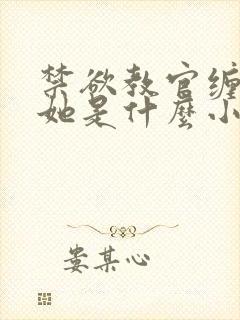 禁欲教官缠
她是什麼小
娄某心